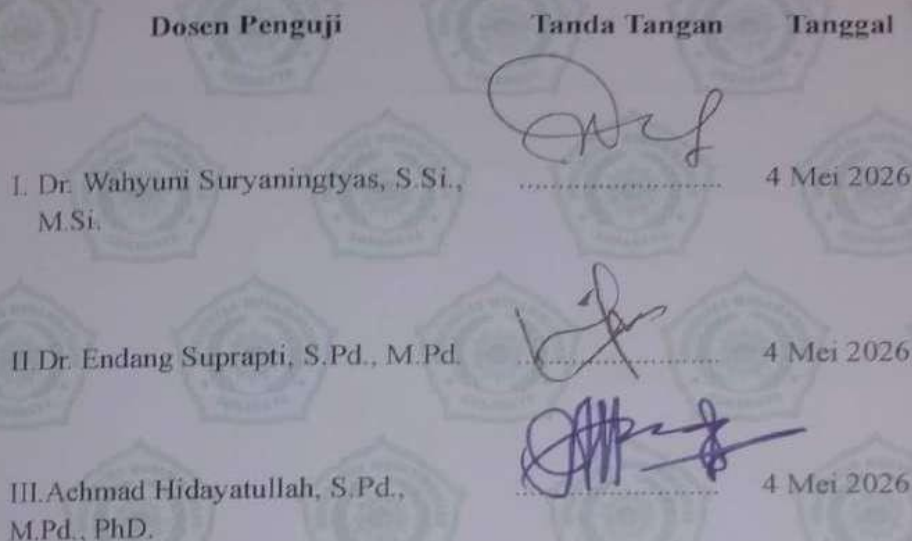 Dosen Penguji Tanda Tangan Tanggal
I. Dr. Wahyuni Suryaningtyas, S.Si., ........................... 4 Mei 2026
M.Si.
II.Dr. Endang Suprapti, S.Pd., M.Pd. ........................... 4 Mei 2026
III.Achmad Hidayatullah, S.Pd., ........................... 4 Mei 2026
M.Pd., PhD.